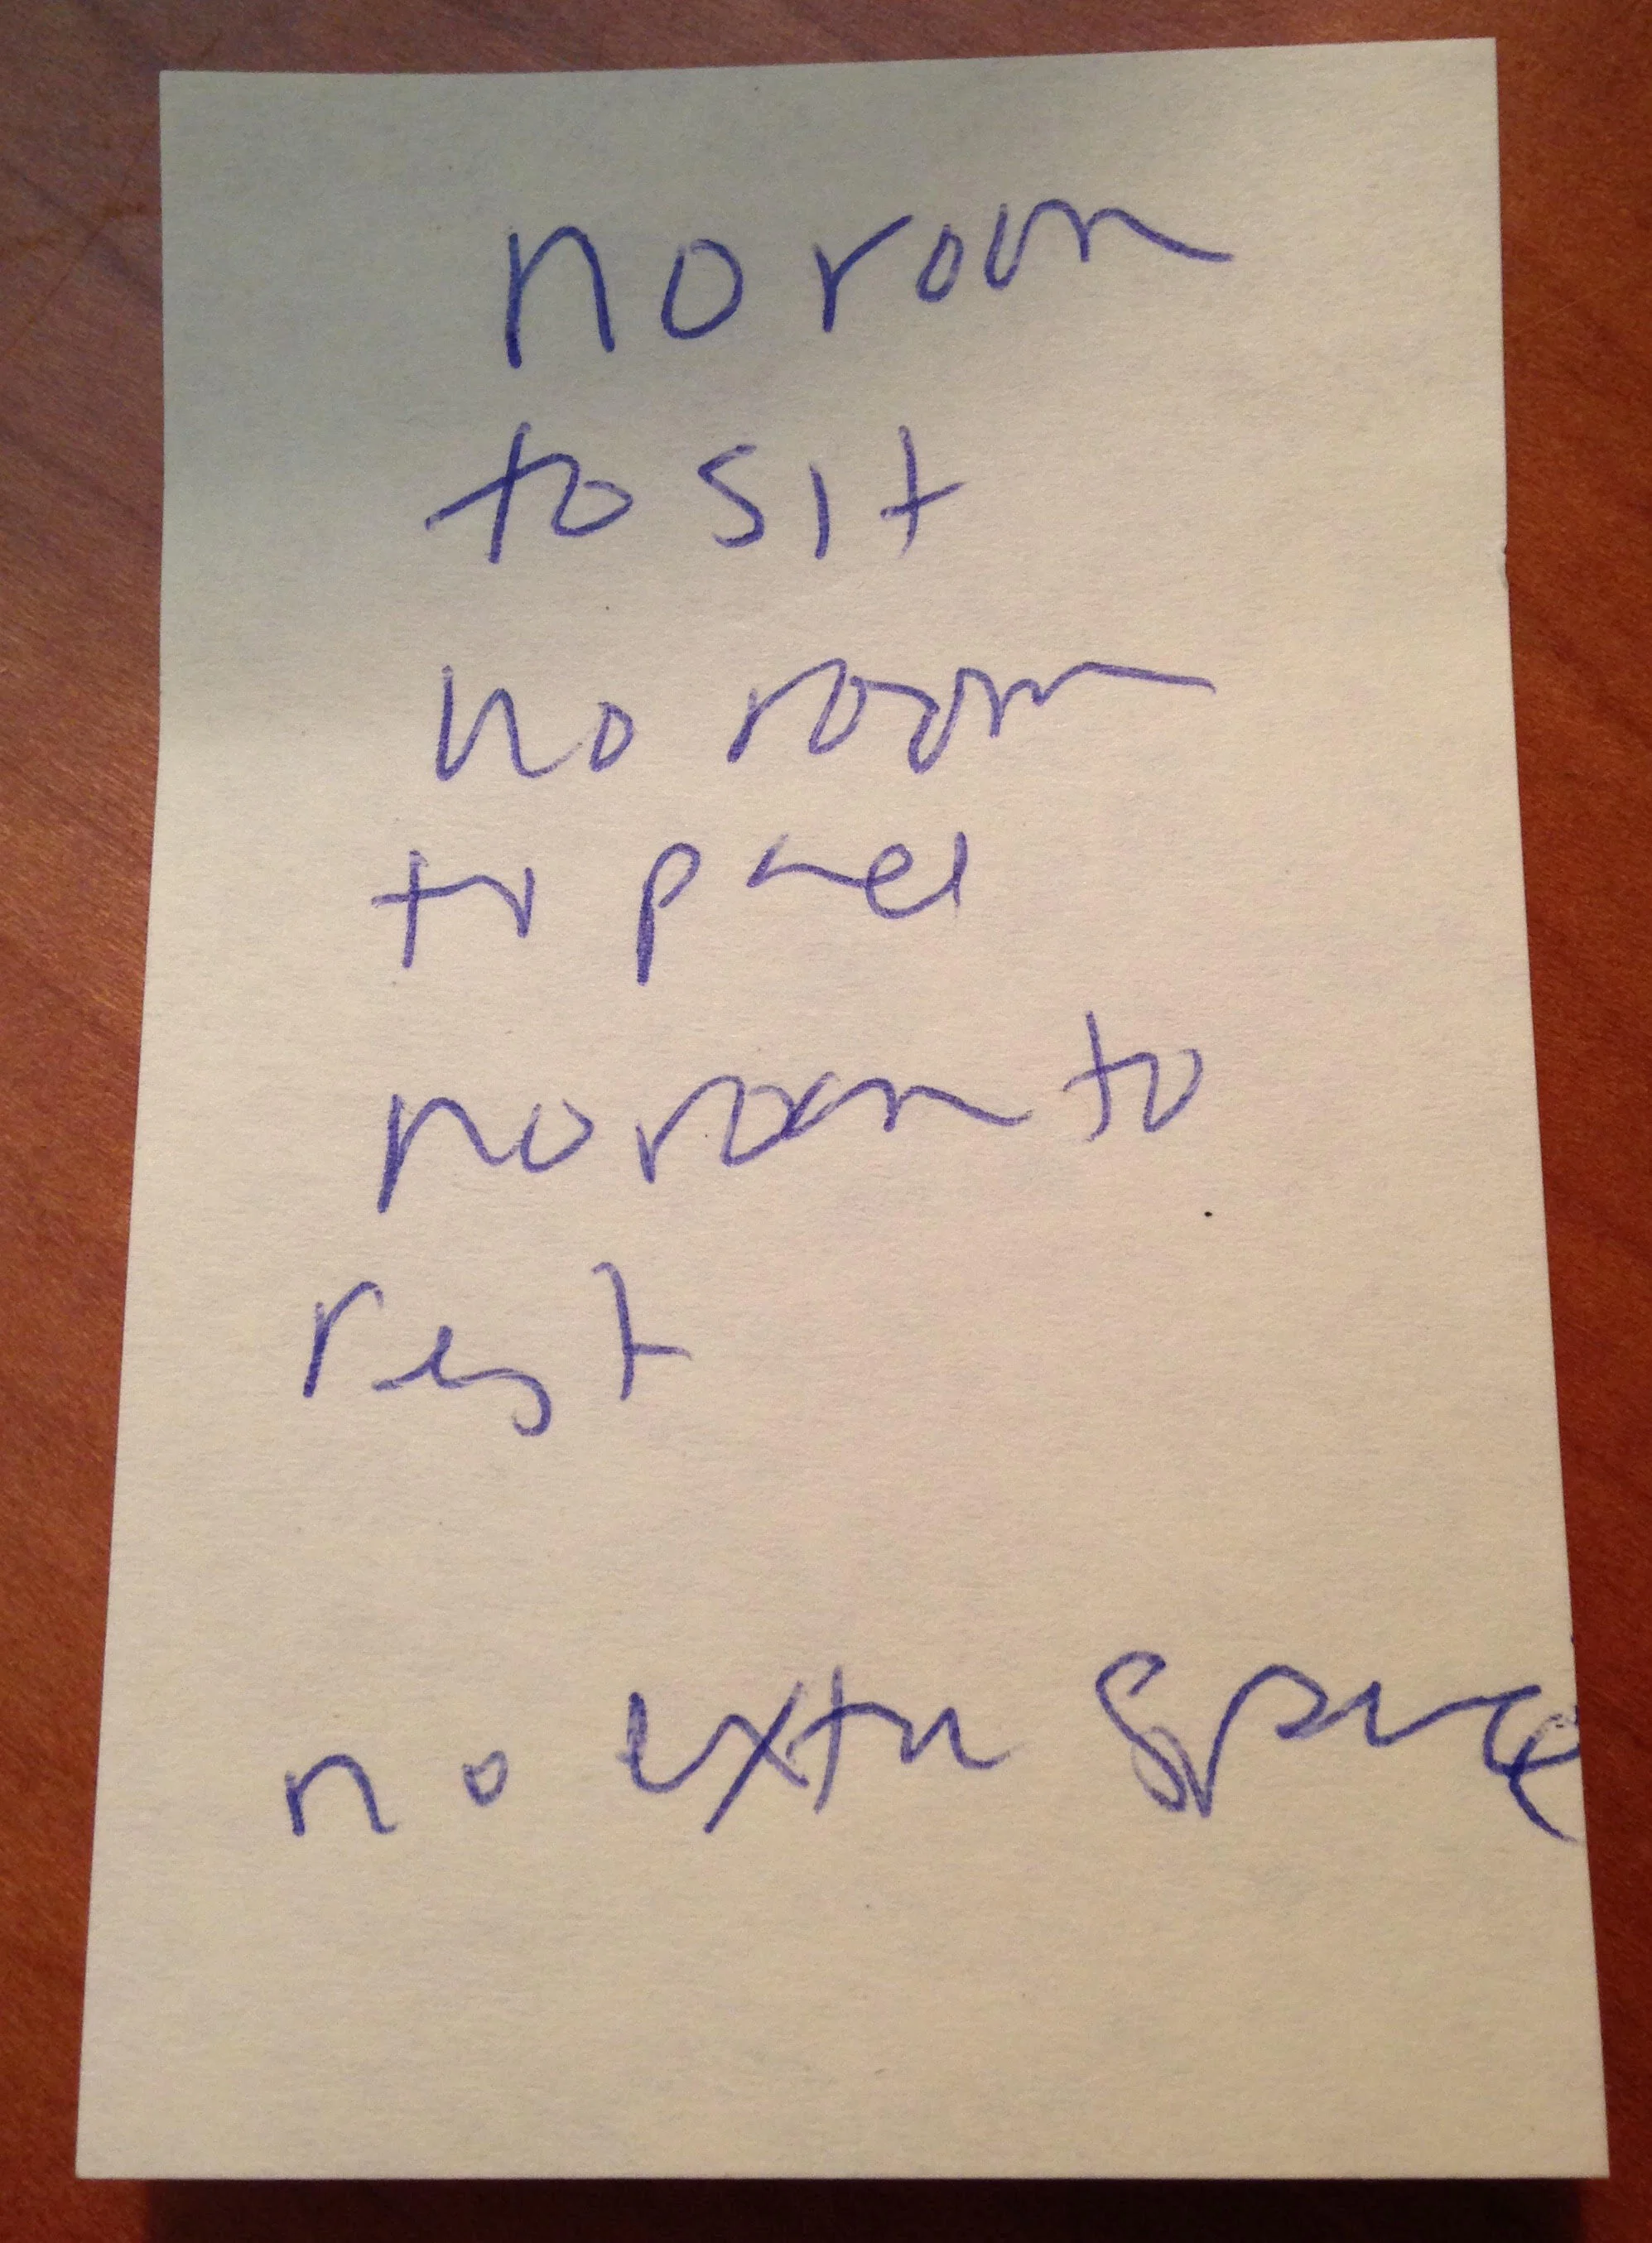 no room
to sit
no room
to
no room to
rest
no extra space